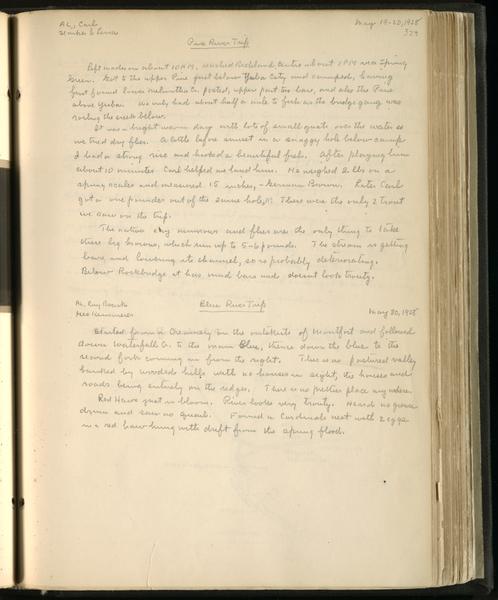 AL, Carl
May 19-20, 1928
329
Pine River Trip
Left Madison about 10 AM, reached Richland Center about 1 PM via Spring
Green. Got to the upper Pine just below Yuba City and camped, having
first found
posted, upper part too bare, and also the Pine
above Yuba. We only had about half a mile to fish as the bridge gang was
roiling the creek below.
It was a bright warm day with lots of small gnats over the water so
we tried dry flies. A little before sunset in a snaggy hole below camp
I had a strong rise and hooked a beautiful fish. After playing him
about 10 minutes Carl helped me land him. He weighed 2 lbs on a
spring scales and measured 18 inches, - German Brown. Later Carl
got a one pounder out of the same hole. These were the only 2 trout
we saw on the trip.
The native say minnows and flies are the only thing to take
these big browns, which run up to 5-6 pounds. The stream is getting
bare, and losing its channel, so is probably deteriorating.
Below Rockbridge it has mud bars and doesn't look trouty.
AL, Ray Roark
Blue River Trip
May 20, 1928
Started from a Creamery on the outskirts of Montfort and followed
down Waterfall Cr. to the main Blue, thence down the Blue to the
second fork coming in from the right. This is a pastured valley
banked by wooded hills with no houses in sight, the houses and
roads being entirely on the ridges. There is no prettier place anywhere.
Red Haws just in bloom. River looks very trouty. Heard no grouse
drum and saw no quail. Found a Cardinal's nest with 2 eggs
in a red haw hung with drift from the spring flood.